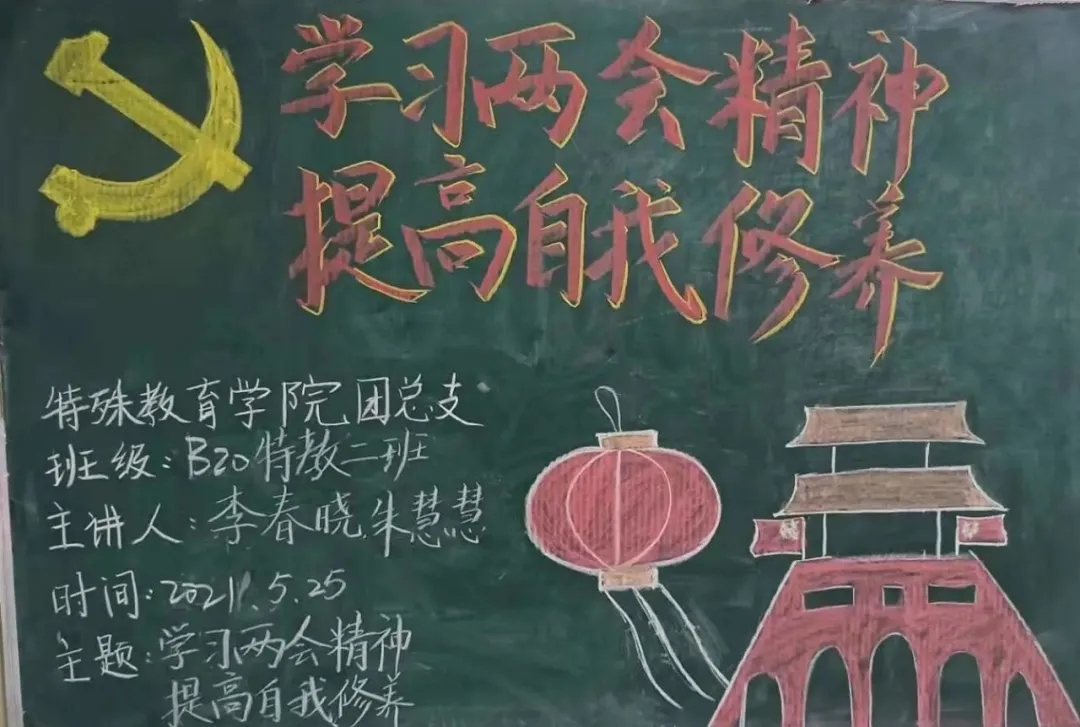 学习两会精神
提高自我修养
特殊教育学院团总支
班级：B20特教二班
主讲人：李春晓朱慧慧
时间：2021.5.25
主题：学习两会精神
提高自我修养